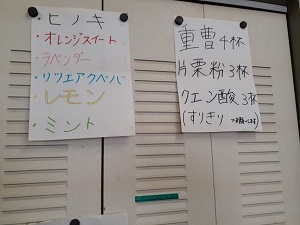 ・ヒノキ
・オレンジスイート
・ラベンダー
・リツエアクベバ
・レモン
・ミント
重曹4杯
片栗粉3杯
クエン酸3杯
(すりきり